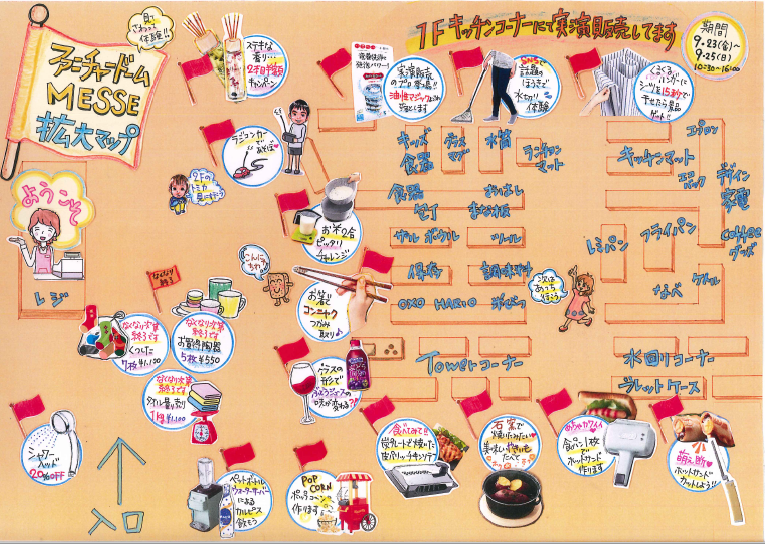 見て
さわって
体験!!
ファニチャードーム
MESSE
拡大マップ
ようこそ
レジ
1Fキッチンコーナーにて実演販売してます
期間
9.23(金)〜
9.25(日)
10:30〜16:00
ステキな
香り…
2本目半額
キャンペーン
ラジコンカーで
あそぼ♡
2Fの
トミカ
見にきてー
実演販売
のプロ登場!!
油性マジックが
話題の
ほうきで
水切り
体験
くるくる
シーツを15秒で
キッズ
食器
グラス
マグ
水筒
ランチョン
マット
エプロン
キッチンマット
エコ
バック
デザイン
家電
食器
おはし
包丁
まな板
ザル
ボウル
ツール
レミパン
フライパン
coffee
グッズ
ケトル
なべ
調味料
OXO
HARIO
お米2合
ピッタリ
チャレンジ
こんにちわ
お箸で
コンニャク
つかみ
取り♪
次は
あっち
行こう
なくなり
次第
終了
なくなり次第
終了です
くつした
7枚¥1,100
なくなり次第
終了です
お買得陶器
5枚¥550
なくなり次第
終了です
タオル量り売り
1kg¥1,100
グラスの
形で
ぶどうジュースの
味が変わる?!
Towerコーナー
水回りコーナー
ラレットケース
シャワー
ヘッド
20%OFF
入口
ペットボトル
ウォーターサーバー
による
カルピス
飲もう
POP
CORN
ポップコーン
作ります
食べてみて!!
炭プレートで焼いた
石窯で
焼いたみたい♡
美味しい焼いも
たべて
めちゃカワイイ
食パン1枚
で
ホットサンド
作ります
萌え断♡
ホットサンド
カットしよう!!